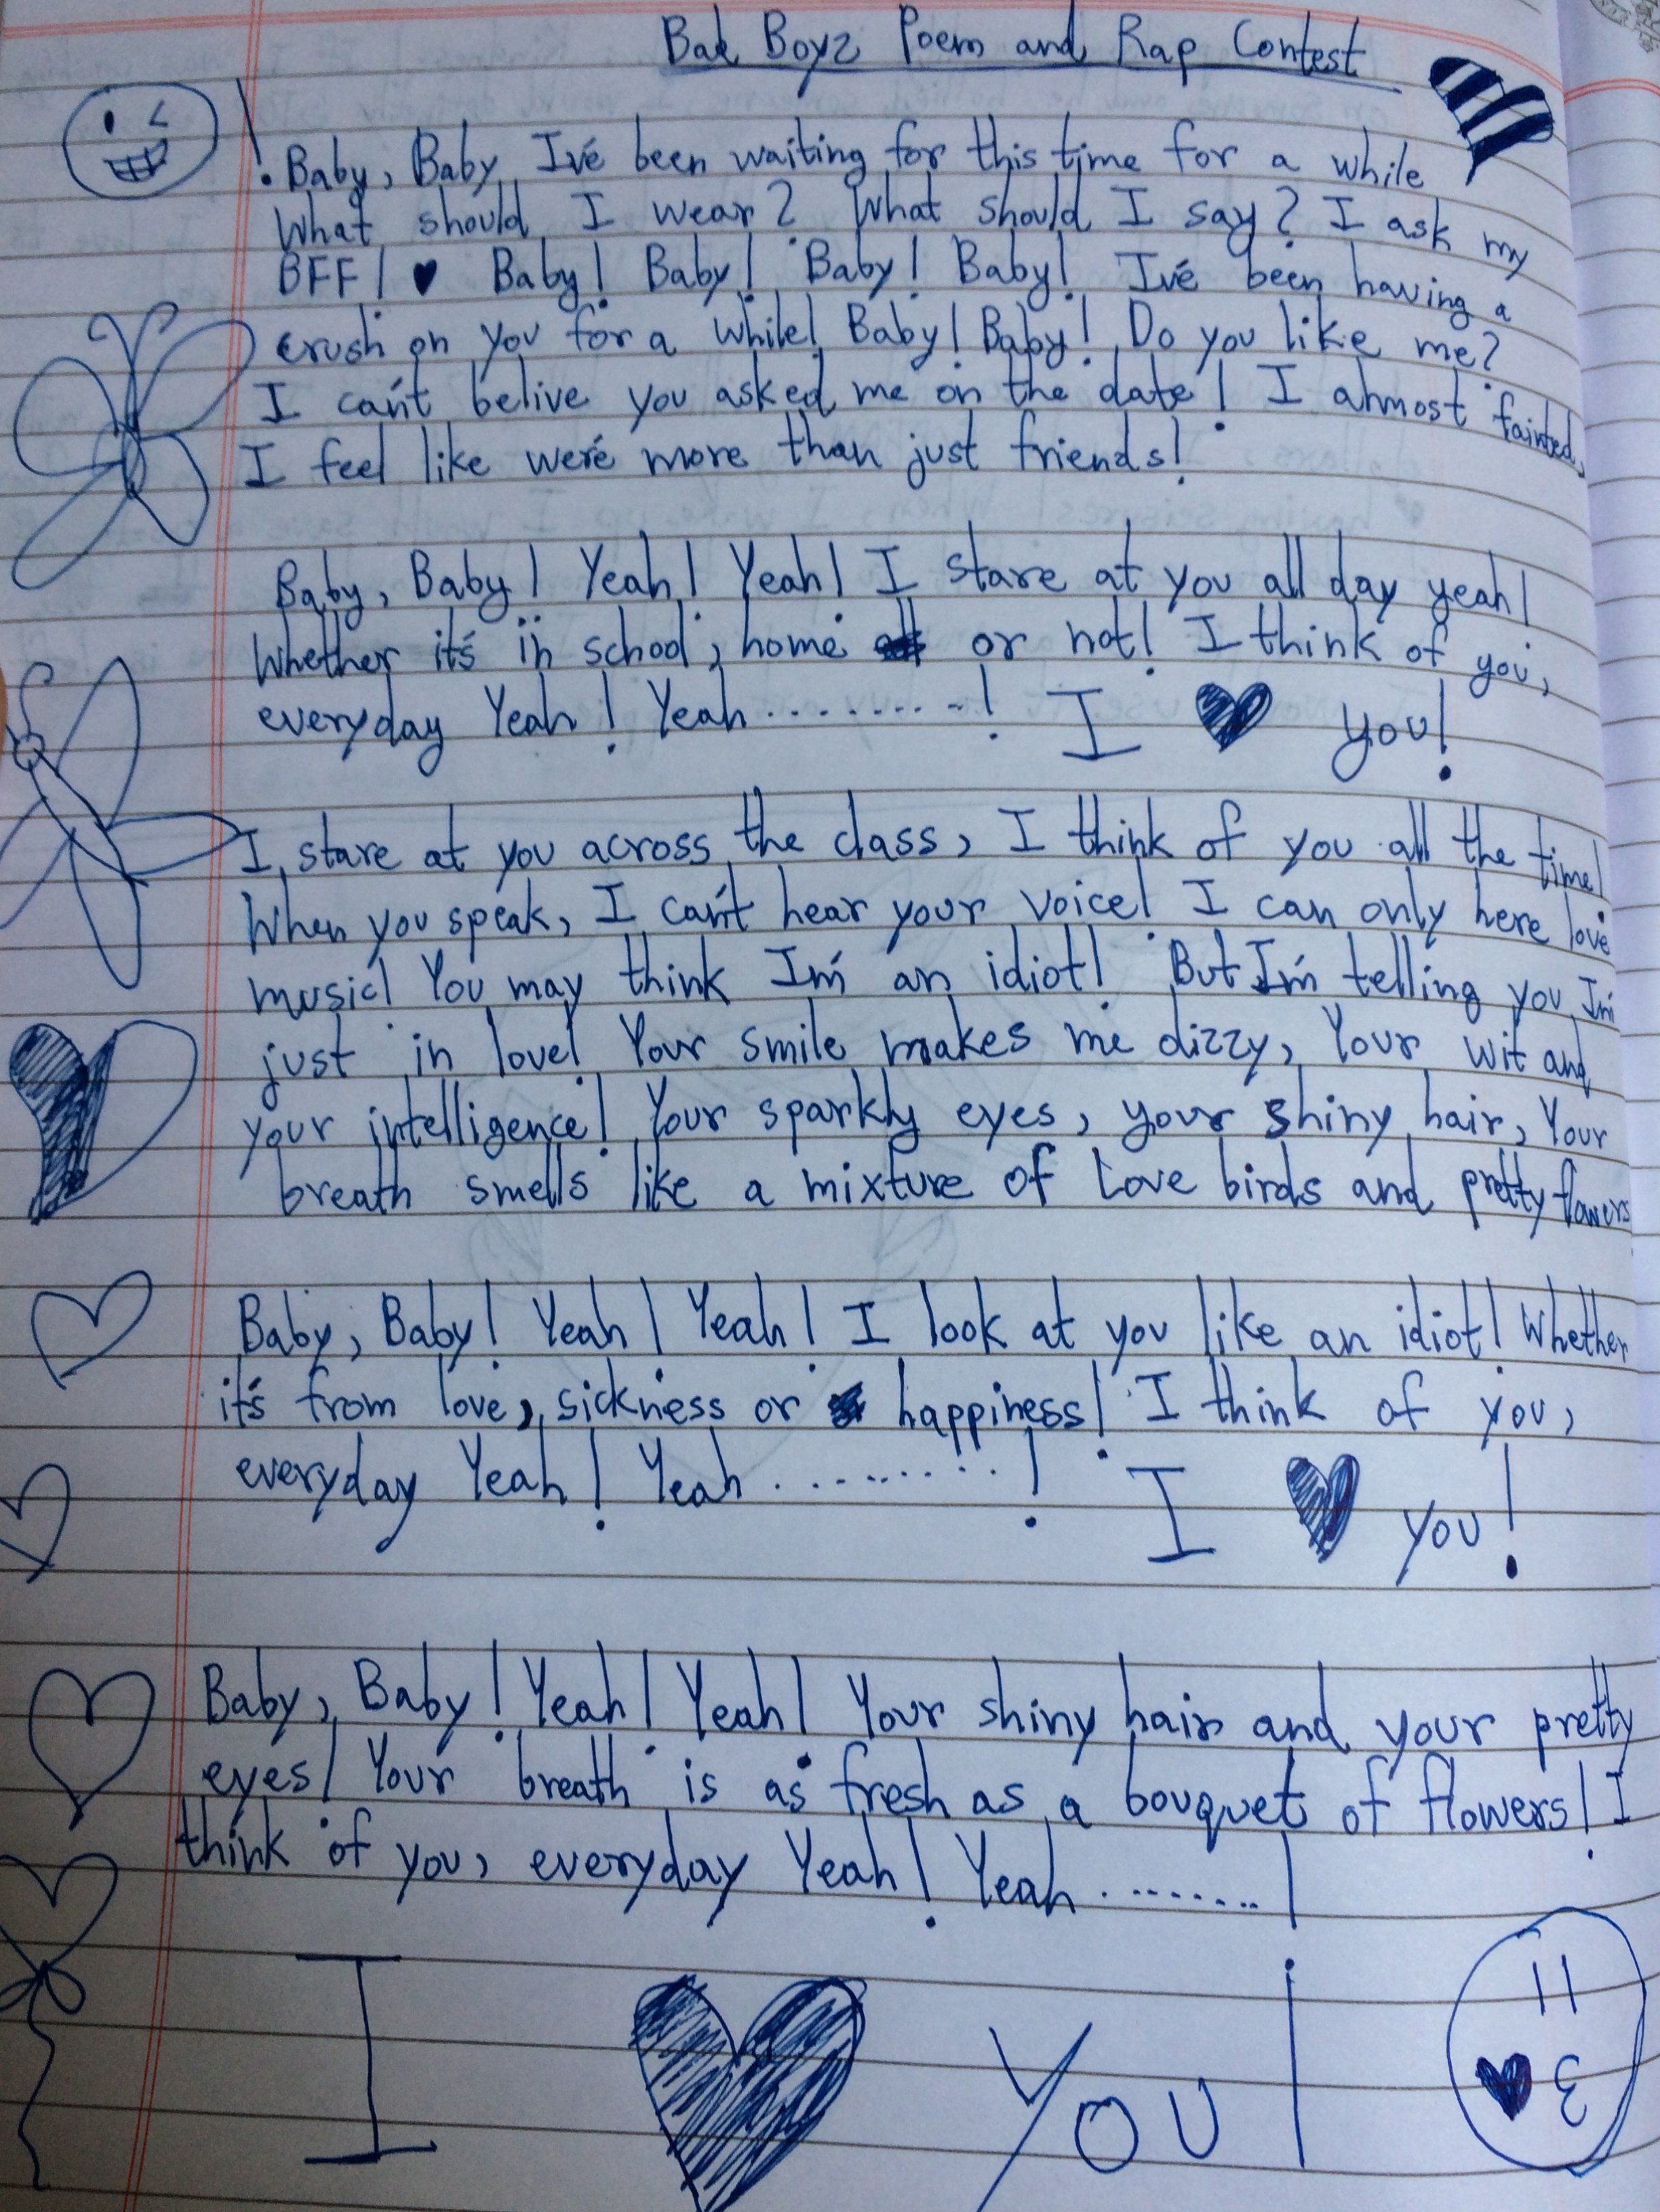 Bad Boyz Poem and Rap Contest
Baby, Baby I've been waiting for this time for a while
What should I wear? What should I say? I ask my
BFF! ♥ Baby! Baby! Baby! Baby! I've been having a
crush on you for a while! Baby! Baby! Do you like me?
I can't belive you asked me on the date! I almost fainted,
I feel like we're more than just friends!
Baby, Baby! Yeah! Yeah! I stare at you all day yeah!
Whether it's in school, home or not! I think of you,
everyday Yeah! Yeah..........! I ♥ you!
I stare at you across the class, I think of you all the time!
When you speak, I can't hear your voice! I can only here love
music! You may think I'm an idiot! But I'm telling you I'm
just in love! Your smile makes me dizzy, Your wit and
your intelligence! Your sparkly eyes, your shiny hair, Your
breath smells like a mixture of Love birds and pretty flowers
Baby, Baby! Yeah! Yeah! I look at you like an idiot! Whether
it's from love, sickness or happiness! I think of you,
everyday Yeah! Yeah..........! I ♥ you!
Baby, Baby! Yeah! Yeah! Your shiny hair and your pretty
eyes! Your breath is as fresh as a bouquet of flowers! I
think of you, everyday Yeah! Yeah.........!
I ♥ YOU!